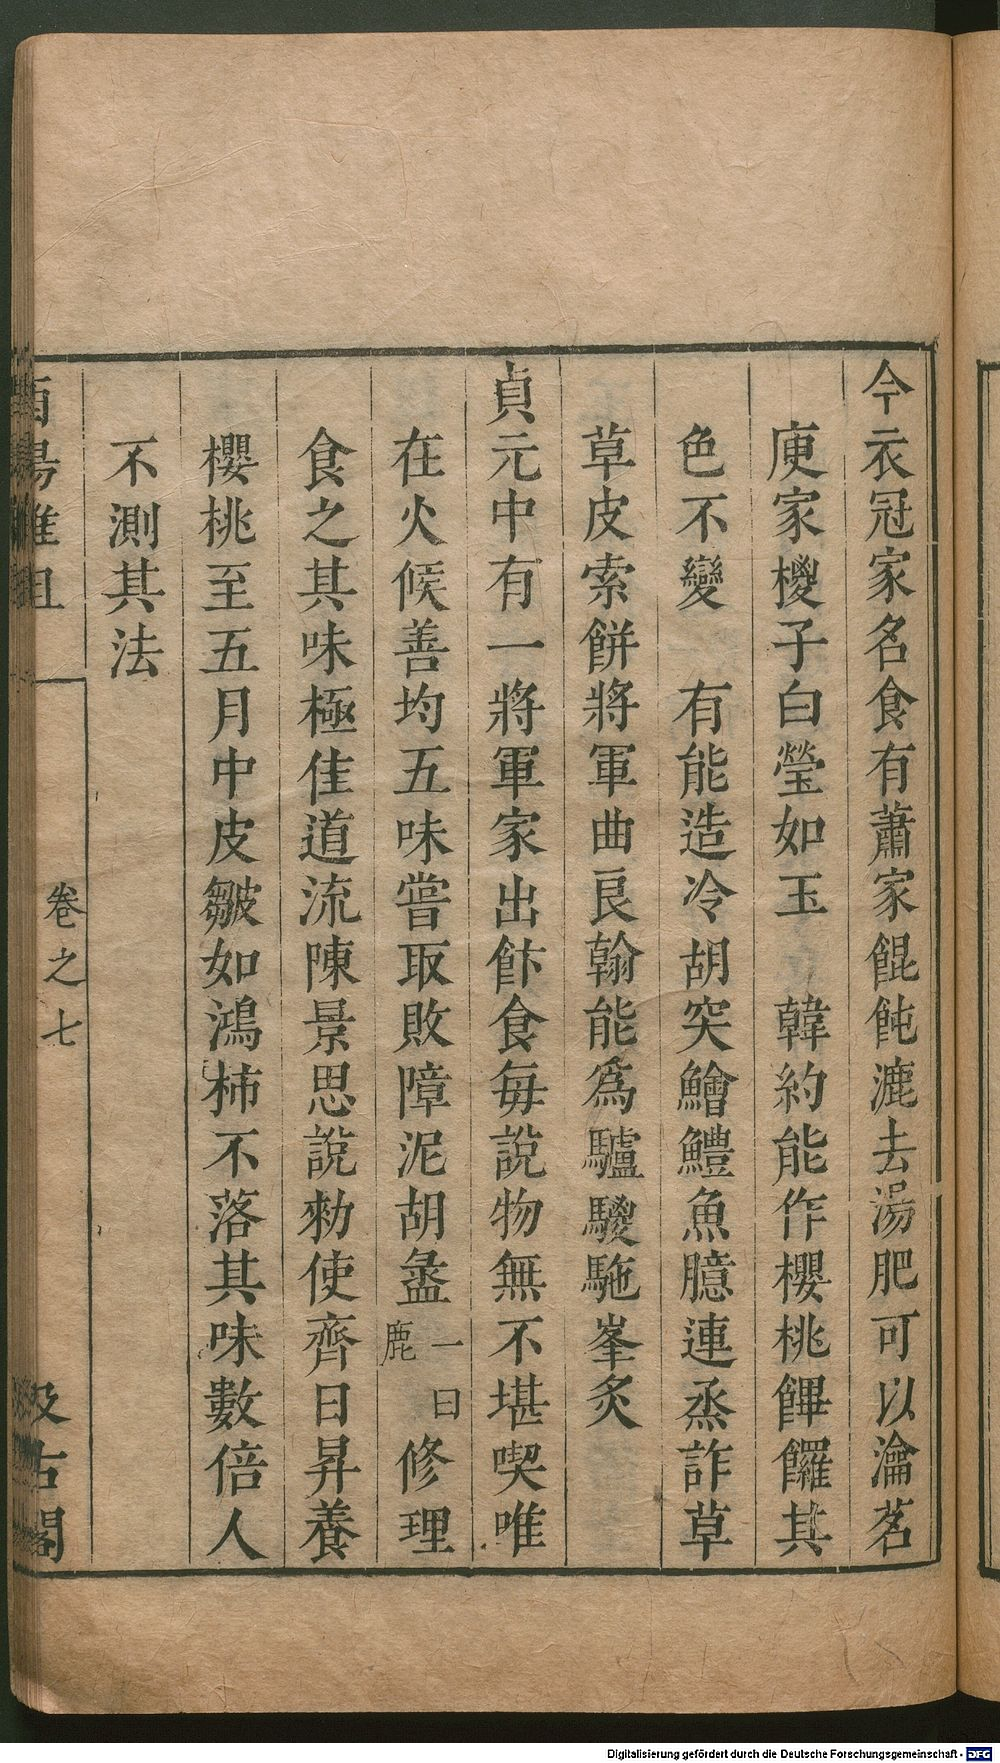 今衣冠家名食有蕭家餛飩漉去湯肥可以瀹茗
庾家椶子白瑩如玉　韓約能作櫻桃饆饠其
色不變　有能造冷胡突鱠鱧魚臆連蒸詐草
草皮索餅將軍曲良翰能為驢騣駞峯炙
貞元中有一將軍家出飰食每說物無不堪喫唯
在火候善均五味嘗取敗障泥胡盝一曰鹿修理
食之其味極佳道流陳景思說勑使齊日昇養
櫻桃至五月中皮皺如鴻柿不落其味數倍人
不測其法
酉陽雜俎
卷之七
汲古閣
Digitalisierung gefördert durch die Deutsche Forschungsgemeinschaft - DFG